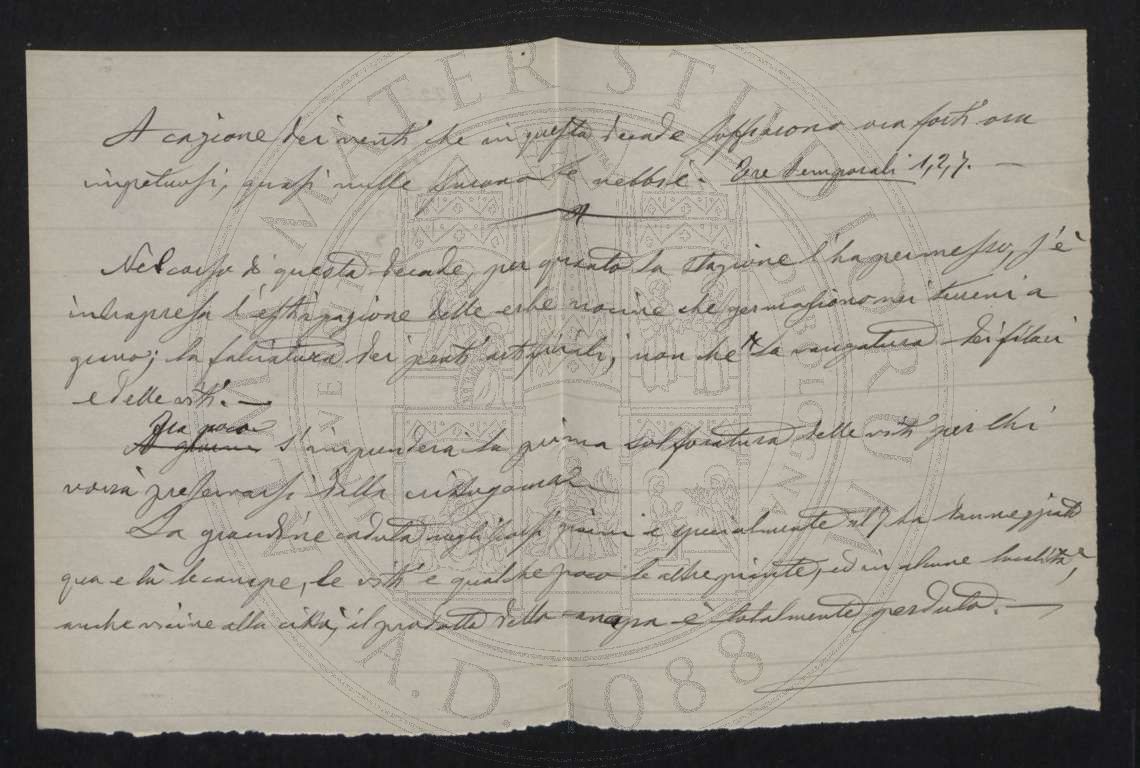 A cagione dei venti che in questa decade soffiarono ora forti ora
impetuosi, quasi nulle furono le nebbie. Tre temporali 1, 2, 7. —
Nel corso di questa decade, per quanto la stagione l'ha permesso, s'è
intrapresa l'estirpazione delle erbe nocive che germogliono nei terreni a
grano; la falciatura dei prati artificiali, non che la vangatura dei filari
e delle viti. —
Fra poco s'imprenderà la prima solforatura delle viti per chi
vorrà preservarsi dalla crittogama
La grandine caduta negli scorsi giorni e specialmente il 7 ha danneggiato
qua e là le canipe, le viti e qualche poco le altre piante, ed in alcune località,
anche vicine alla città, il prodotto della canapa è totalmente perduto. —
ALMA MATER STUDIORUM
A.D. 1088